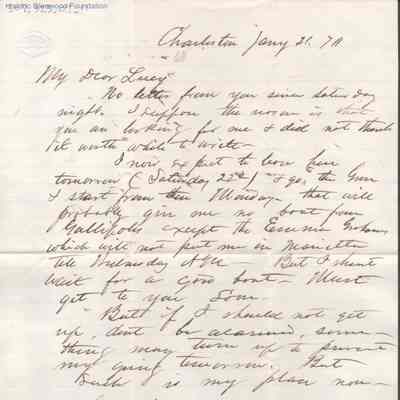 Historic Glenwood Foundation
Charleston Jany 21. 71
My Dear Lucy
No letter from you since Saturday
night. I suppose the reason is that
you are looking for me & did not think
it worth while to write—
I now expect to leave here
tomorrow (Saturday 22d) & go the
& start from there Monday— that will
probably give me no boat from
Gallipolis except the Emma Graham
which will not put me in Marietta
till Wednesday AM— But I shant
wait for a good boat— Must
get to you soon—
But if I should not get
up, dont be alarmed, some-
thing may turn up to prevent
my going tomorrow. But
Such is my plan now—